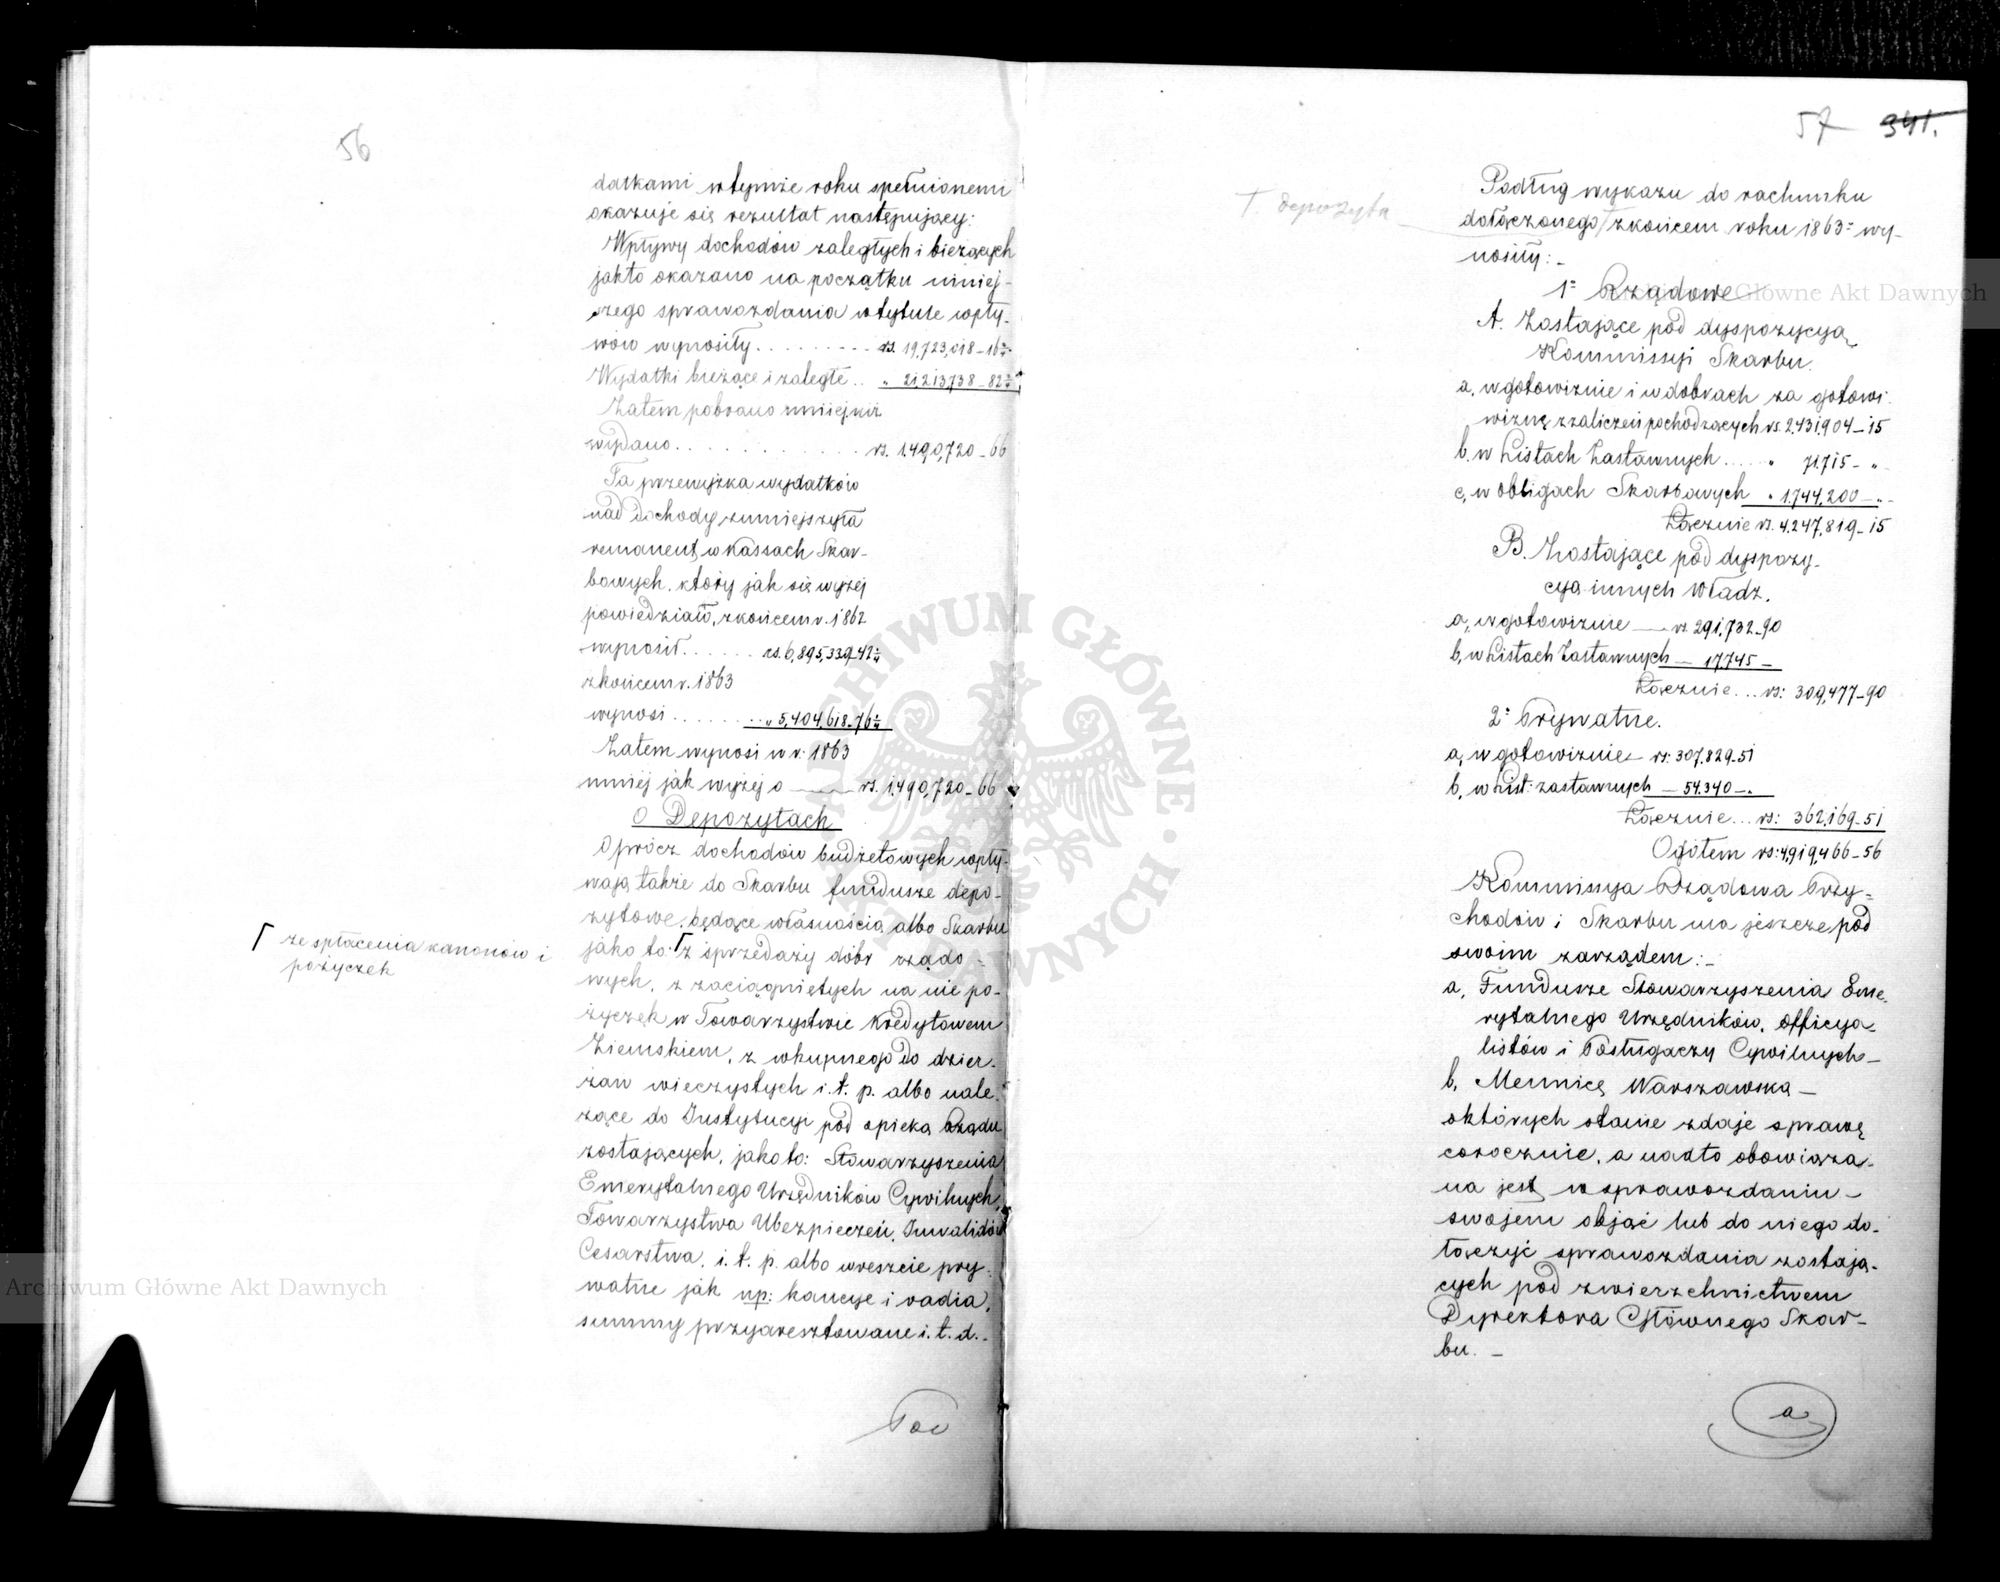 56
datkami w tymże roku spełnionemi
okazuje się rezultat następujący:
Wpływy dochodów zaległych i bieżących
jak to okazano na początku niniej-
szego sprawozdania w tytule wpły-
wów wynosiły . . . . . . . . rs. 19,723,018-16½
Wydatki bieżące i zaległe . . „ 21,213,738-82½
Zatem pobrano mniej niż
wydano . . . . . . . . . . . . rs. 1,490,720-66
Ta przewyżka wydatków
nad dochody zmniejszyła
remanent w Kassach Skar-
bowych, który jak się wyżej
powiedziało, z końcem r. 1862
wynosił . . . . . . rs. 6,895,339-42½
z końcem r. 1863
wynosi . . . . . . . . „ 5,404,618-76½
Zatem wynosi w r. 1863
mniej jak wyżej o —— rs. 1,490,720-66
O Depozytach
Oprócz dochodów budżetowych wpły-
wają także do Skarbu fundusze depo-
zytowe, będące własnością albo Skarbu
jako to: Γ z sprzedaży dóbr rządo-
wych, z zaciągniętych na nie po-
życzek w Towarzystwie Kredytowem
Ziemskiem, z wkupnego do dzier-
żaw wieczystych i. t. p. albo nale-
żące do Instytucyi pod opieką Rządu
zostających, jako to: Stowarzyszenia
Emerytalnego Urzędników Cywilnych,
Towarzystwa Ubezpieczeń, Inwalidów
Cesarstwa, i. t. p. albo wreszcie pry-
watne jak np: kaucye i vadia,
summy przyaresztowane i. t. d. -
Γ ze spłacenia kanonów i
pożyczek
Pod
57 341.
T. depozyta
Podług wykazu do rachunku
dołączonego / z końcem roku 1863 wy-
nosiły: -
1 Rządowe
A. Zostające pod dyspozycyą
Kommissyi Skarbu.
a, w gotowiznie i w dobrach za gotowi
wiznę z zaliczeń pochodzących rs. 2,431,904-15
b. w Listach Zastawnych . . . . „ 71,715-„
c, w obligach Skarbowych „ 1,744,200-„-
Łącznie rs. 4,247,819-15
B. Zostające pod dyspozy-
cyą innych Władz.
a, w gotowiznie —— rs. 291,732-90
b, w Listach Zastawnych — 17,745 —
Łącznie . . . rs: 309,477-90
2 Prywatne.
a, w gotowiznie — rs: 307,829-51
b, w List: zastawnych — 54,340 — „
Łącznie . . . rs: 362,169-51
Ogółem rs: 4,919,466-56
Kommissya Rządowa Przy-
chodów i Skarbu ma jeszcze pod
swoim zarządem: -
a, Fundusze Stowarzyszenia Eme-
rytalnego Urzędników, Officya-
listów i Posługaczy Cywilnych -
b, Mennicę Warszawską —
o których stanie zdaje sprawę
corocznie, a nadto obowiąza-
na jest w sprawozdaniu -
swojem objąć lub do niego do-
łączyć sprawozdania zostają-
cych pod zwierzchnictwem
Dyrektora Głównego Skar-
bu. -
a
Archiwum Główne Akt Dawnych
Archiwum Główne Akt Dawnych
ARCHIWUM GŁÓWNE AKT DAWNYCH